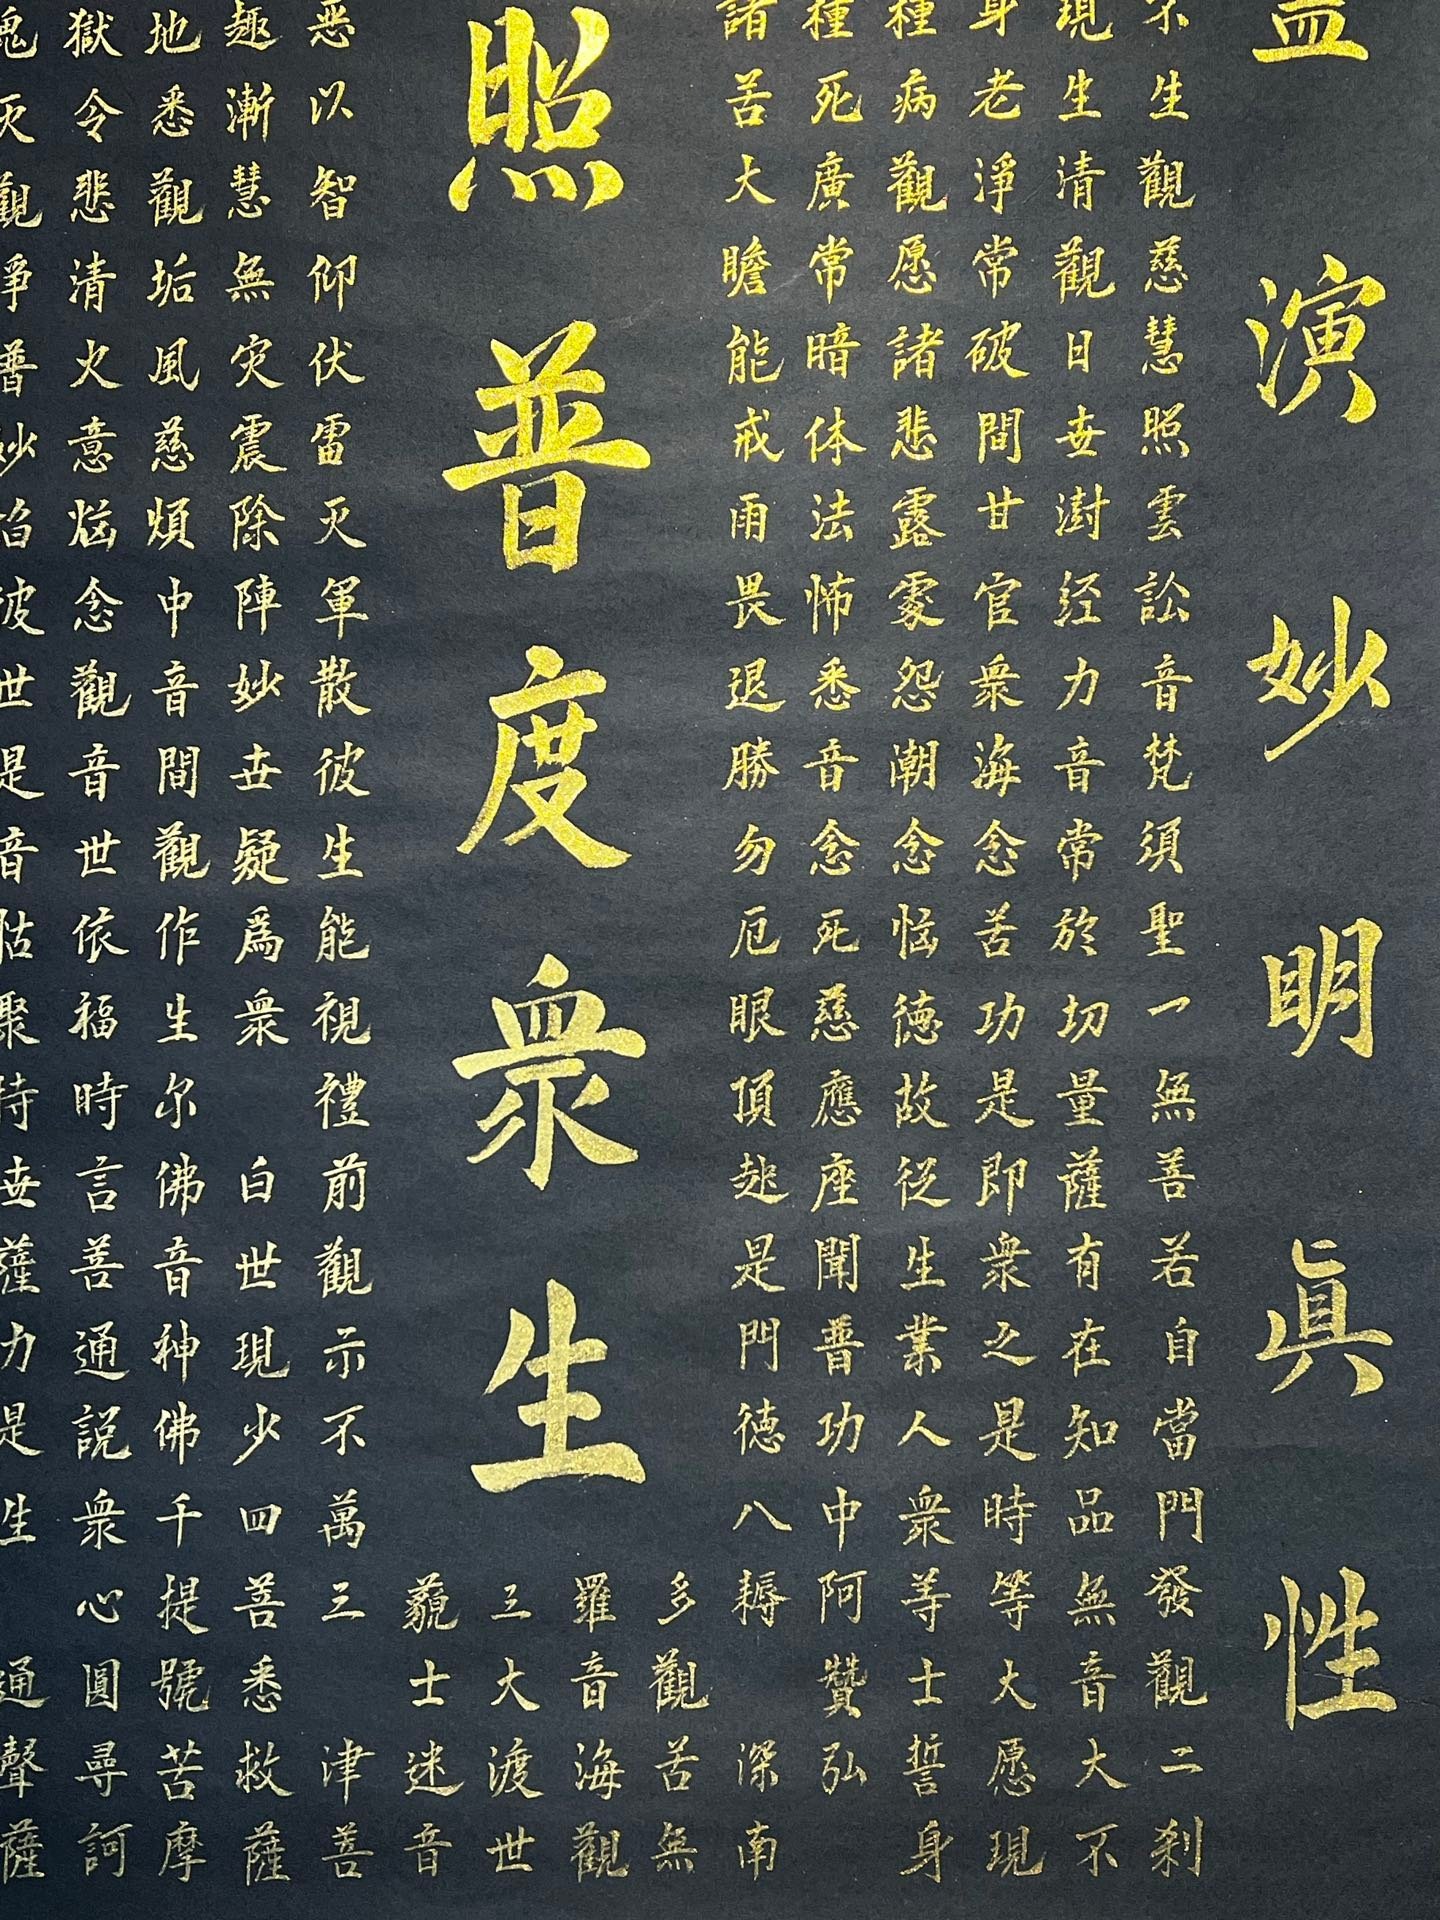 演妙明眞性
不生觀慈慧照雲訟音梵須聖一無善若自當門發觀二刹
現生清觀日世澍经力音常於切量薩有在知品無音大不
身老淨常破間甘官衆海念苦功是即衆之是時等大愿現
種病觀愿諸悲露處怨潮念惱德故從生業人衆等士誓身
種死廣常暗体法怖悉音念死慈應座聞普功中阿贊弘
諸苦大瞻能戒雨畏退勝勿厄眼頂起是門德八耨 深南
多觀苦無
羅音海觀
三大渡世
藐士迷音
照普度衆生
惡以智仰伏雷灭軍散彼生能視禮前觀示不萬三 津菩
趣漸慧無灾震除陣妙世疑爲衆 白世現少四菩悉救薩
地悉觀垢風慈煩中音間觀作生尔佛音神佛千提號苦摩
獄令悲清火意惱念觀音世依福時言善通說衆心圓尋訶
鬼灭觀淨普妙焰彼世是音怙聚持世薩力是生 通聲薩